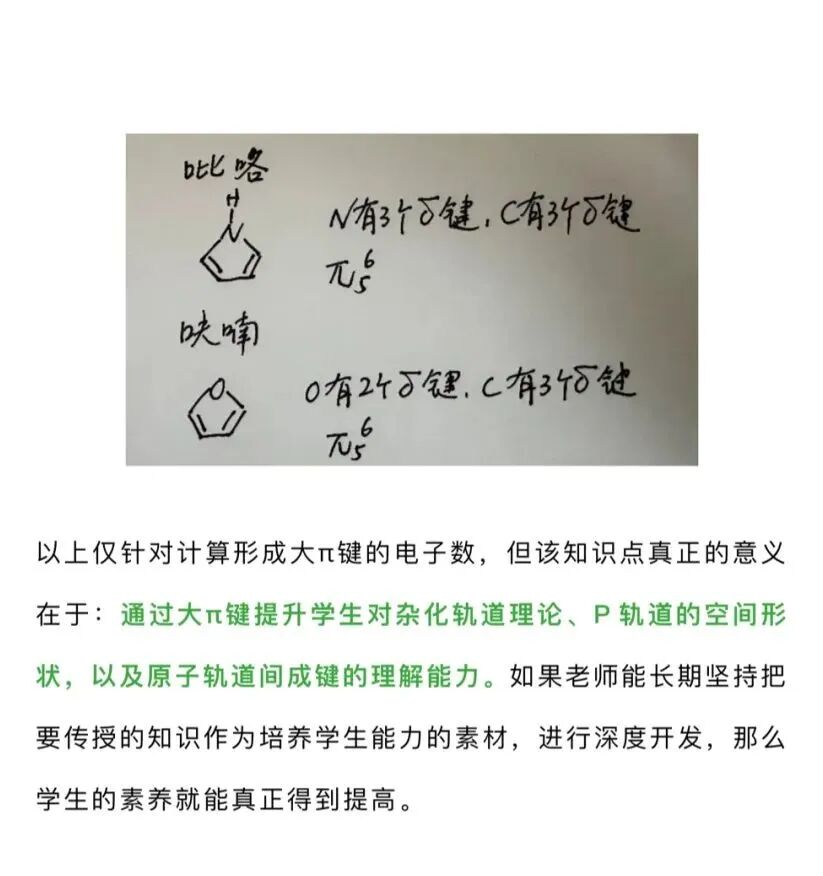 吡咯
H
N
N有3个δ键，C有3个δ键
π₅⁶
呋喃
O
O有2个δ键，C有3个δ键
π₅⁶
以上仅针对计算形成大π键的电子数，但该知识点真正的意义
在于：通过大π键提升学生对杂化轨道理论、P 轨道的空间形
状，以及原子轨道间成键的理解能力。如果老师能长期坚持把
要传授的知识作为培养学生能力的素材，进行深度开发，那么
学生的素养就能真正得到提高。